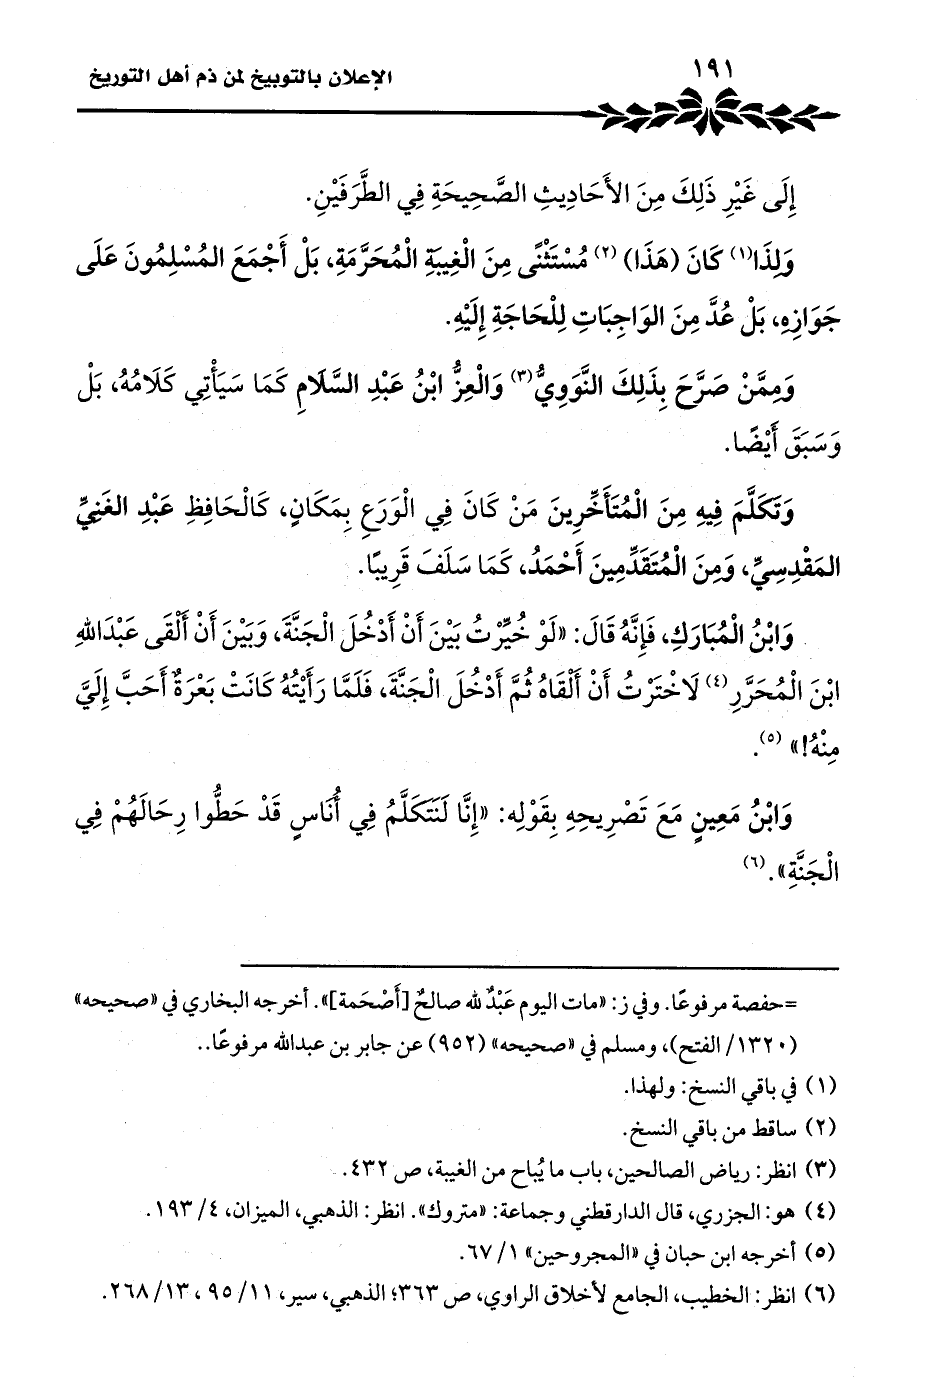 ١٩١
الإعلان بالتوبيخ لمن ذم أهل التوريخ
إِلَى غَيْرِ ذَلِكَ مِنَ الأَحَادِيثِ الصَّحِيحَةِ فِي الطَّرَفَيْنِ.
وَلِذَا(١) كَانَ (هَذَا) (٢) مُسْتَثْنًى مِنَ الْغِيبَةِ الْمُحَرَّمَةِ، بَلْ أَجْمَعَ المُسْلِمُونَ عَلَى
جَوَازِهِ، بَلْ عُدَّ مِنَ الوَاجِبَاتِ لِلْحَاجَةِ إِلَيْهِ.
وَمِمَّنْ صَرَّحَ بِذَلِكَ النَّوَوِيُّ(٣) وَالْعِزُّ ابْنُ عَبْدِ السَّلَامِ كَمَا سَيَأْتِي كَلَامُهُ، بَلْ
وَسَبَقَ أَيْضًا.
وَتَكَلَّمَ فِيهِ مِنَ الْمُتَأَخِّرِينَ مَنْ كَانَ فِي الْوَرَعِ بِمَكَانٍ، كَالْحَافِظِ عَبْدِ الغَنِيِّ
المَقْدِسِيِّ، وَمِنَ الْمُتَقَدِّمِينَ أَحْمَدُ، كَمَا سَلَفَ قَرِيبًا.
وَابْنُ الْمُبَارَكِ، فَإِنَّهُ قَالَ: «لَوْ خُيِّرْتُ بَيْنَ أَنْ أَدْخُلَ الْجَنَّةَ، وَبَيْنَ أَنْ أَلْقَى عَبْدَاللهِ
ابْنَ الْمُحَرَّرِ(٤) لَاخْتَرْتُ أَنْ أَلْقَاهُ ثُمَّ أَدْخُلَ الْجَنَّةَ، فَلَمَّا رَأَيْتُهُ كَانَتْ بَعْرَةٌ أَحَبَّ إِلَيَّ
مِنْهُ!» (٥).
وَابْنُ مَعِينٍ مَعَ تَصْرِيحِهِ بِقَوْلِهِ: «إِنَّا لَنَتَكَلَّمُ فِي أُنَاسٍ قَدْ حَطُّوا رِحَالَهُمْ فِي
الْجَنَّةِ».(٦)
=حفصة مرفوعًا. وفي ز: «مات اليوم عَبْدٌ لله صالحٌ [أَصْحَمة]». أخرجه البخاري في «صحيحه»
(١٣٢٠/ الفتح)، ومسلم في «صحيحه» (٩٥٢) عن جابر بن عبدالله مرفوعًا..
(١) في باقي النسخ: ولهذا.
(٢) ساقط من باقي النسخ.
(٣) انظر: رياض الصالحين، باب ما يُباح من الغيبة، ص ٤٣٢.
(٤) هو: الجزري، قال الدارقطني وجماعة: «متروك». انظر: الذهبي، الميزان، ٤/ ١٩٣.
(٥) أخرجه ابن حبان في «المجروحين» ١/ ٦٧.
(٦) انظر: الخطيب، الجامع لأخلاق الراوي، ص ٣٦٣؛ الذهبي، سير، ١١/ ٩٥، ١٣/ ٢٦٨.